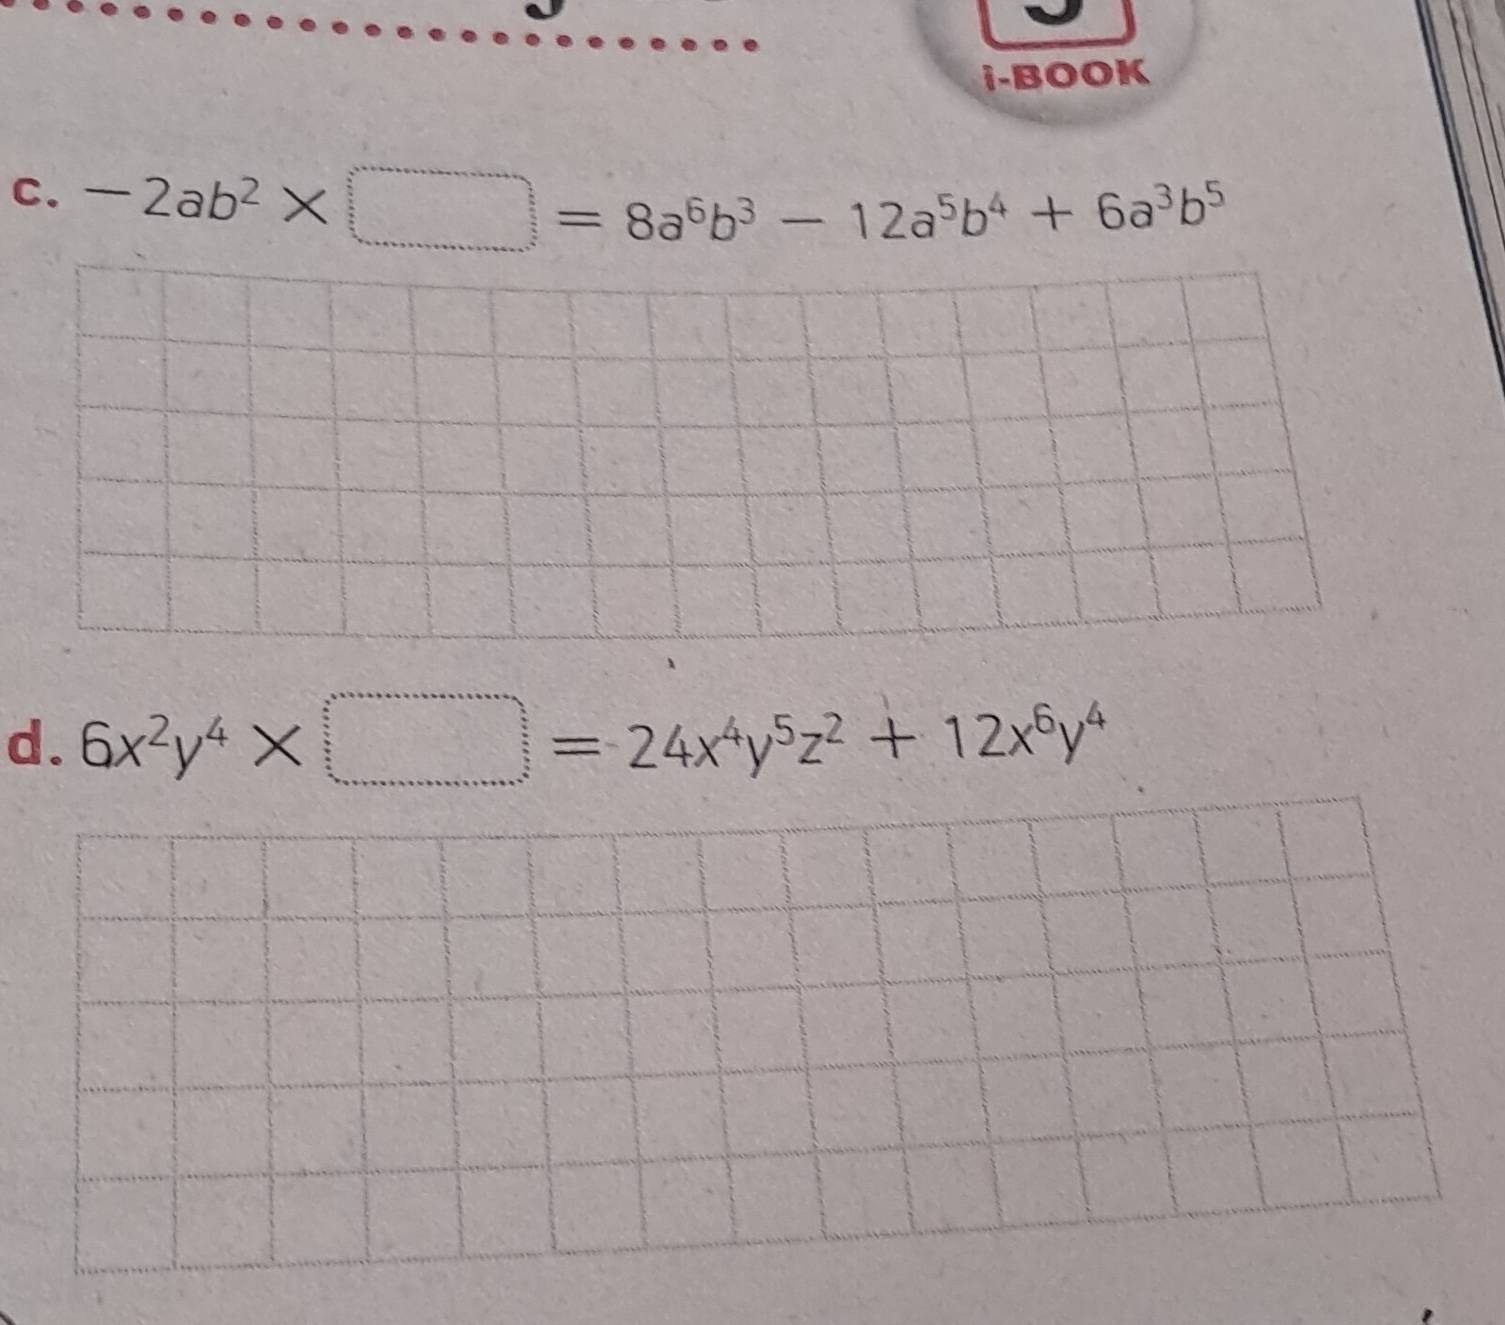 i-BOOK
c. −2ab² × = 8a⁶b³ − 12a⁵b⁴ + 6a³b⁵
d. 6x²y⁴ × = 24x⁴y⁵z² + 12x⁶y⁴